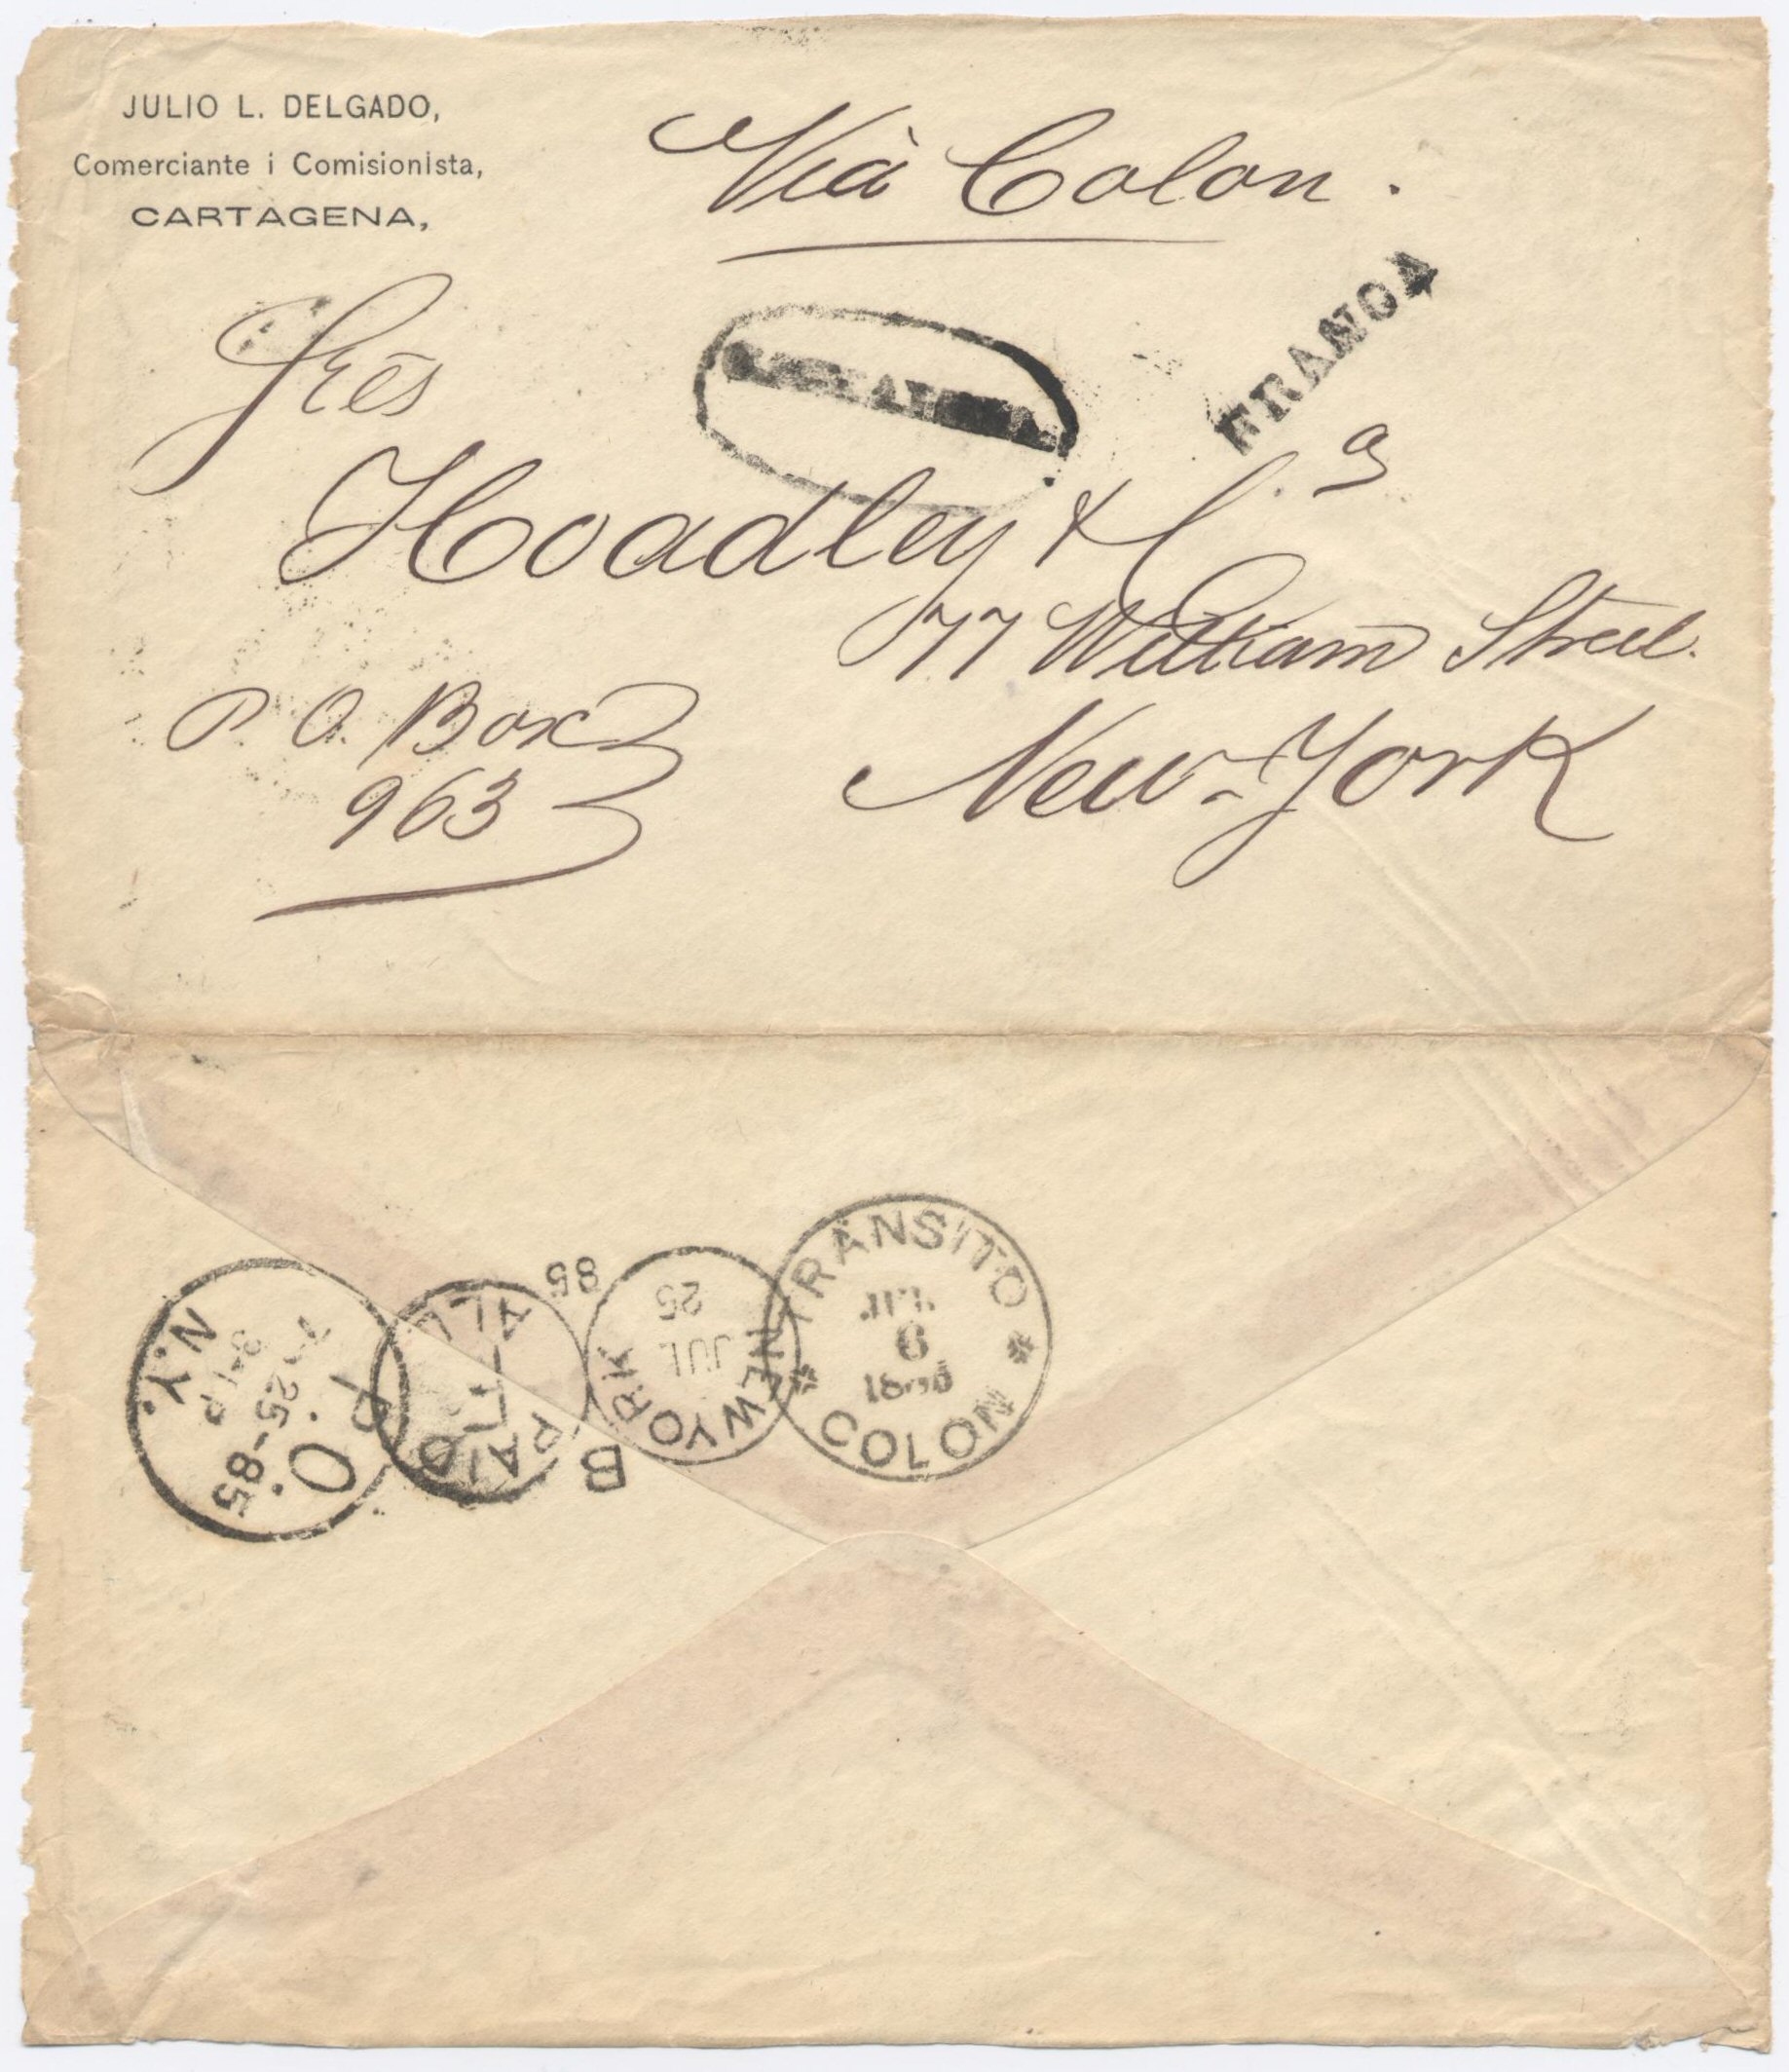 JULIO L. DELGADO,
Comerciante i Comisionista,
CARTAGENA,
Vià Colon.
FRANCA
Sres
Hoadley & C.a
77 William Street.
New-York
P. O. Box
963
TRANSITO
JUL
6
COLON
NEW YORK
JUL
25
85
B
PAID
ALL
P. O.
25-85
N.Y.